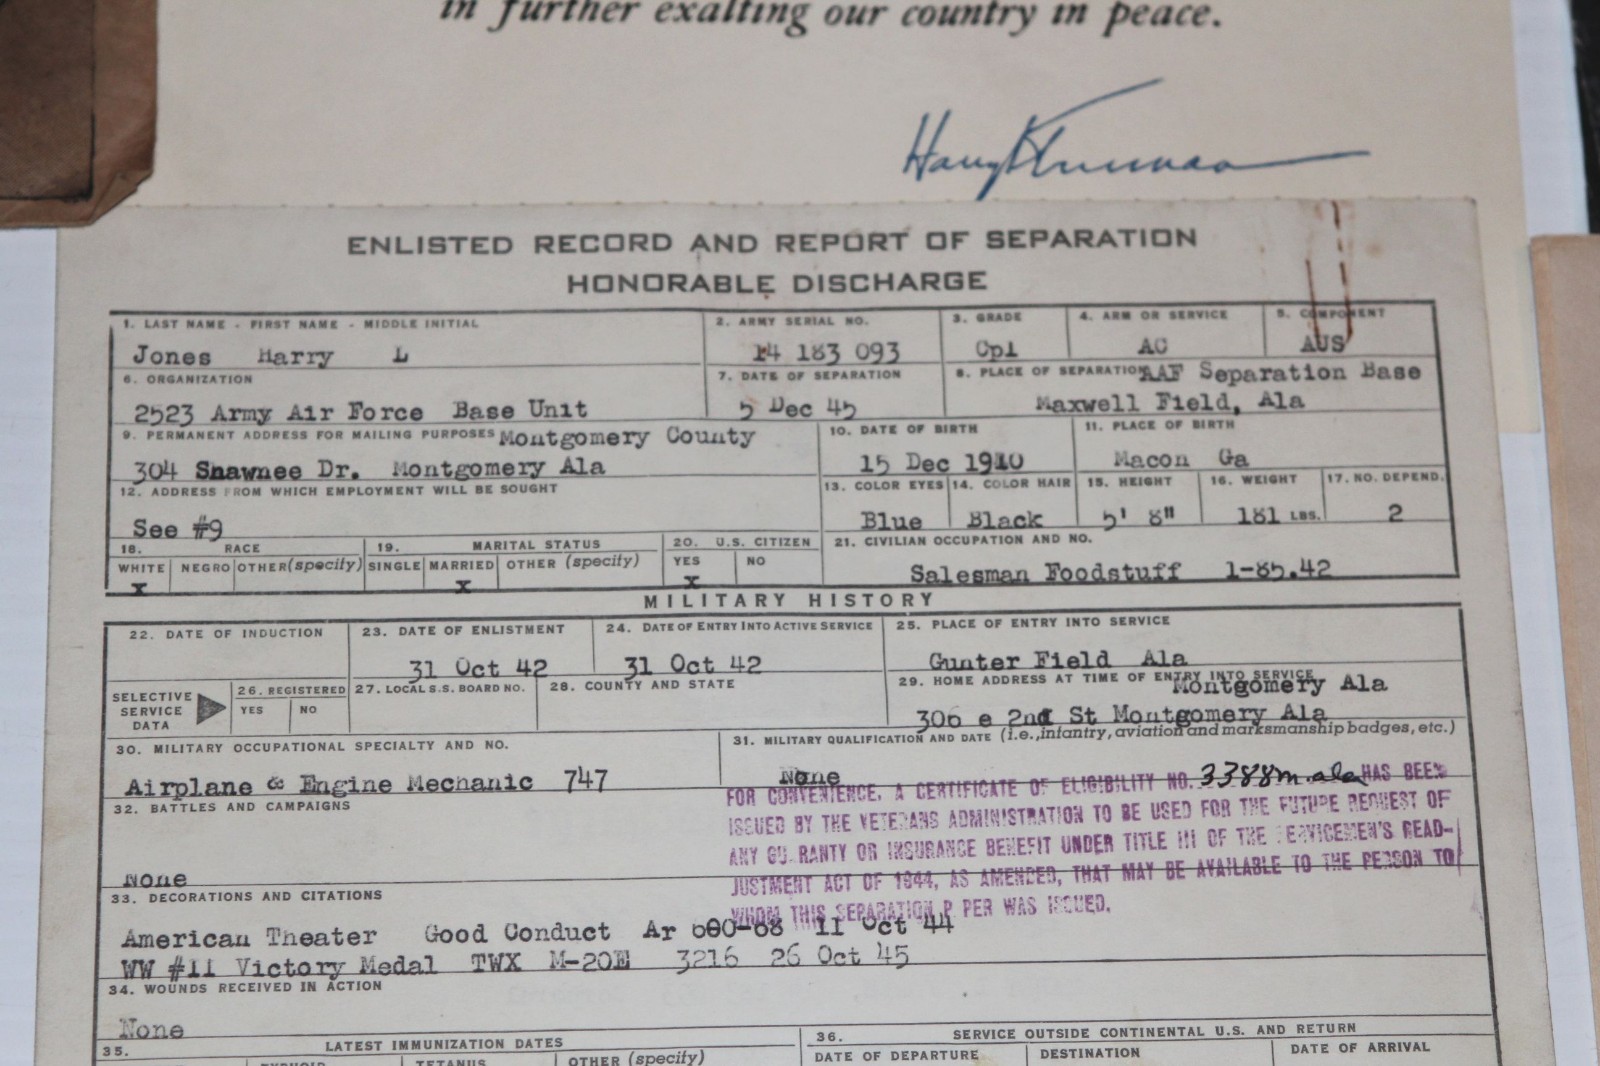 in further exalting our country in peace.
Harry S Truman
ENLISTED RECORD AND REPORT OF SEPARATION
HONORABLE DISCHARGE
1. LAST NAME - FIRST NAME - MIDDLE INITIAL
Jones Harry L
2. ARMY SERIAL NO.
14 183 093
3. GRADE
Cpl
4. ARM OR SERVICE
AC
5. COMPONENT
AUS
6. ORGANIZATION
2523 Army Air Force Base Unit
7. DATE OF SEPARATION
5 Dec 45
8. PLACE OF SEPARATION AAF Separation Base
Maxwell Field, Ala
9. PERMANENT ADDRESS FOR MAILING PURPOSES Montgomery County
304 Shawnee Dr. Montgomery Ala
10. DATE OF BIRTH
15 Dec 1910
11. PLACE OF BIRTH
Macon Ga
12. ADDRESS FROM WHICH EMPLOYMENT WILL BE SOUGHT
See #9
13. COLOR EYES
Blue
14. COLOR HAIR
Black
15. HEIGHT
5' 8"
16. WEIGHT
181 LBS.
17. NO. DEPEND.
2
18. RACE
WHITE NEGRO OTHER (specify)
x
19. MARITAL STATUS
SINGLE MARRIED OTHER (specify)
x
20. U.S. CITIZEN
YES NO
x
21. CIVILIAN OCCUPATION AND NO.
Salesman Foodstuff 1-85.42
MILITARY HISTORY
22. DATE OF INDUCTION
23. DATE OF ENLISTMENT
31 Oct 42
24. DATE OF ENTRY INTO ACTIVE SERVICE
31 Oct 42
25. PLACE OF ENTRY INTO SERVICE
Gunter Field Ala
SELECTIVE
SERVICE
DATA
26. REGISTERED
YES NO
27. LOCAL S.S. BOARD NO.
28. COUNTY AND STATE
29. HOME ADDRESS AT TIME OF ENTRY INTO SERVICE
Montgomery Ala
306 e 2nd St Montgomery Ala
30. MILITARY OCCUPATIONAL SPECIALTY AND NO.
Airplane & Engine Mechanic 747
31. MILITARY QUALIFICATION AND DATE (i.e., infantry, aviation and marksmanship badges, etc.)
None
FOR CONVENIENCE, A CERTIFICATE OF ELIGIBILITY NO. 3388m.ala HAS BEEN
ISSUED BY THE VETERANS ADMINISTRATION TO BE USED FOR THE FUTURE REQUEST OF
ANY GUARANTY OR INSURANCE BENEFIT UNDER TITLE III OF THE SERVICEMEN'S READ-
JUSTMENT ACT OF 1944, AS AMENDED, THAT MAY BE AVAILABLE TO THE PERSON TO
WHOM THIS SEPARATION PAPER WAS ISSUED.
32. BATTLES AND CAMPAIGNS
None
33. DECORATIONS AND CITATIONS
American Theater Good Conduct Ar 600-68 11 Oct 44
WW #11 Victory Medal TWX M-20E 3216 26 Oct 45
34. WOUNDS RECEIVED IN ACTION
None
35. LATEST IMMUNIZATION DATES
TETANUS OTHER (specify)
36. SERVICE OUTSIDE CONTINENTAL U.S. AND RETURN
DATE OF DEPARTURE DESTINATION DATE OF ARRIVAL